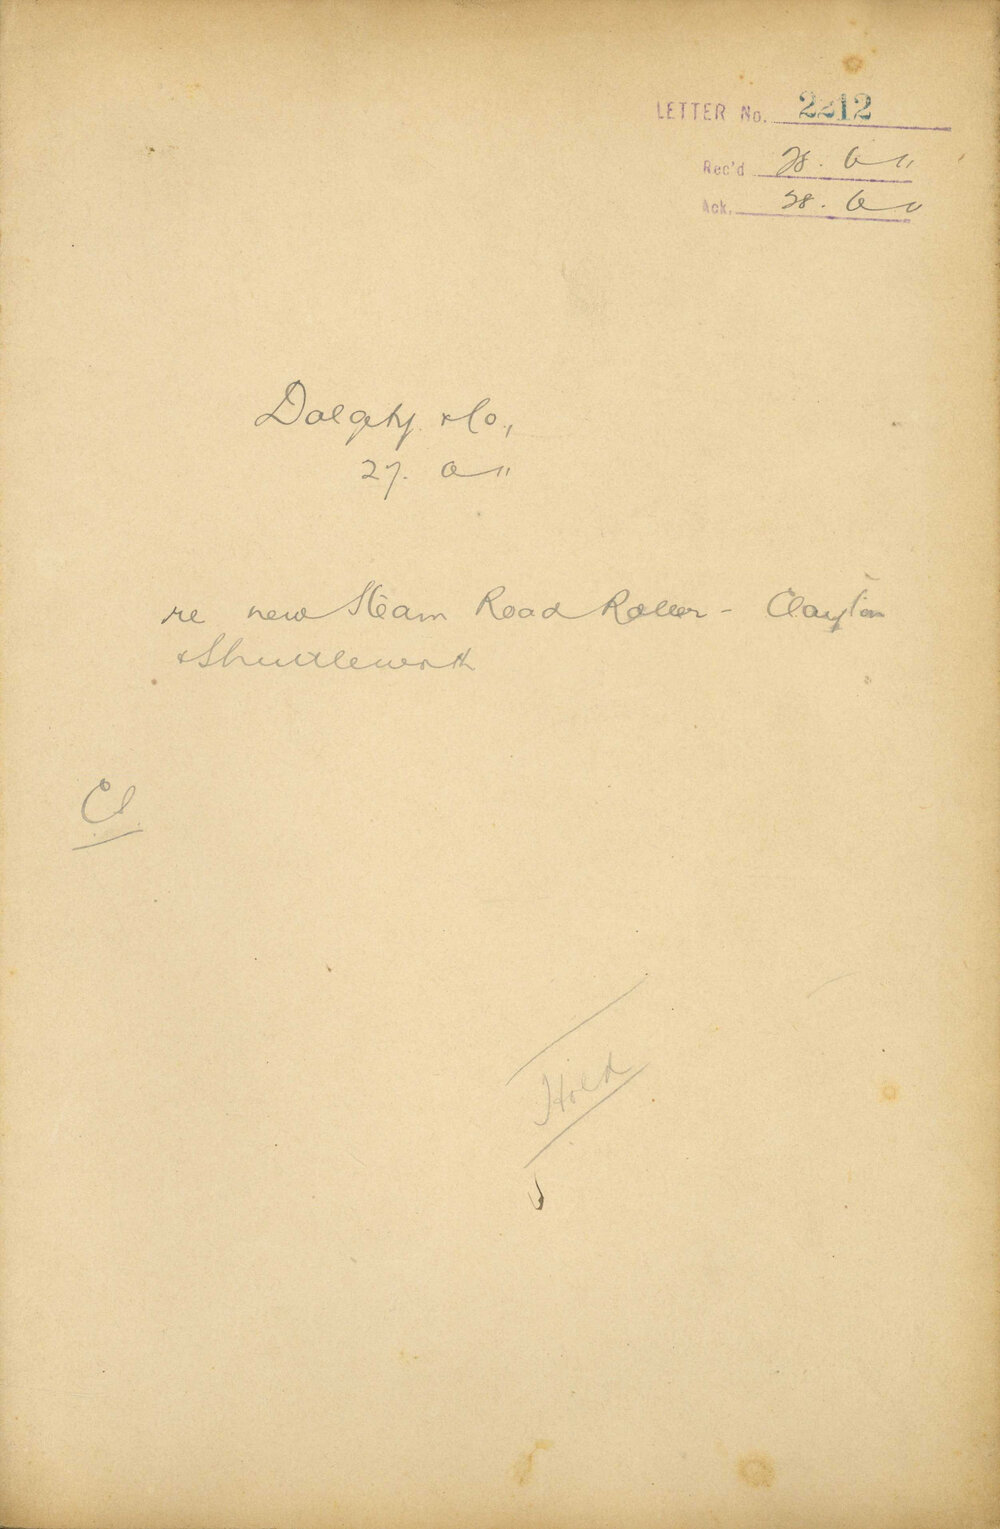 LETTER No. 2212
Rec'd 28. 6 11
Ack. 28. 6 11
Dalgety & Co.,
27. 6 11
re new Steam Road Roller - Clayton
& Shuttleworth
Hold